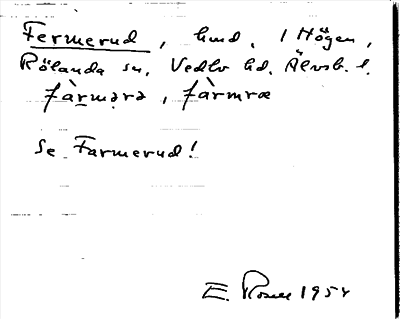 Fermerud, hmd. i Högen,
Rölanda sn, Vedbo hd. Älvsb. l.
fàrmərə, fàrmræ
Se Farmerud!
E. Rosell 1954